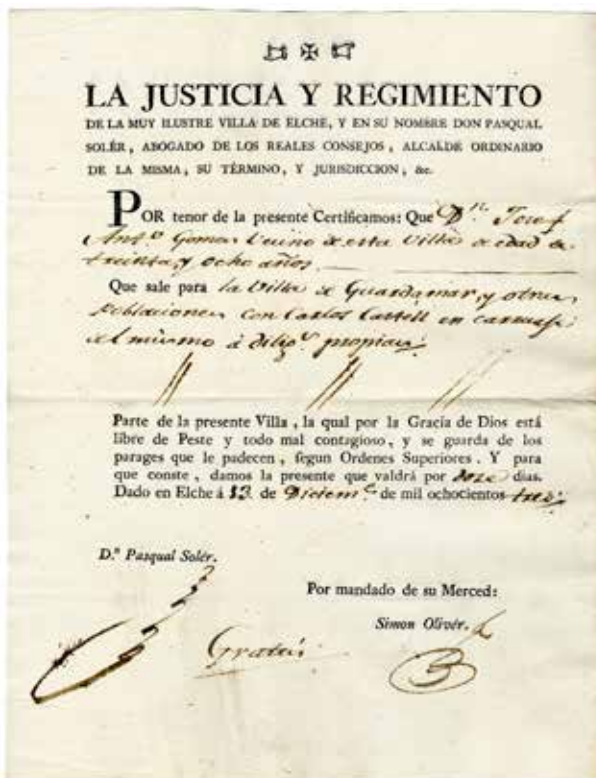 LA JUSTICIA Y REGIMIENTO
DE LA MUY ILUSTRE VILLA DE ELCHE, Y EN SU NOMBRE DON PASQUAL
SOLÉR, ABOGADO DE LOS REALES CONSEJOS, ALCALDE ORDINARIO
DE LA MISMA, SU TÉRMINO, Y JURISDICCION, &c.
POR tenor de la presente Certificamos: Que Dn. Josef
Anto. Gomar Vecino de esta Villa de edad de
treinta, y ocho años
Que sale para la Villa de Guardamar, y otras
Poblaciones con Carlos Castell en carruage
del mismo á diligs. propias
Parte de la presente Villa, la qual por la Gracia de Dios está
libre de Peste y todo mal contagioso, y se guarda de los
parages que le padecen, segun Ordenes Superiores. Y para
que conste, damos la presente que valdrá por doze dias.
Dado en Elche á 13 de Dicieme. de mil ochocientos tres.
D.n Pasqual Solér.
Por mandado de su Merced:
Simon Olivér.
Gratis